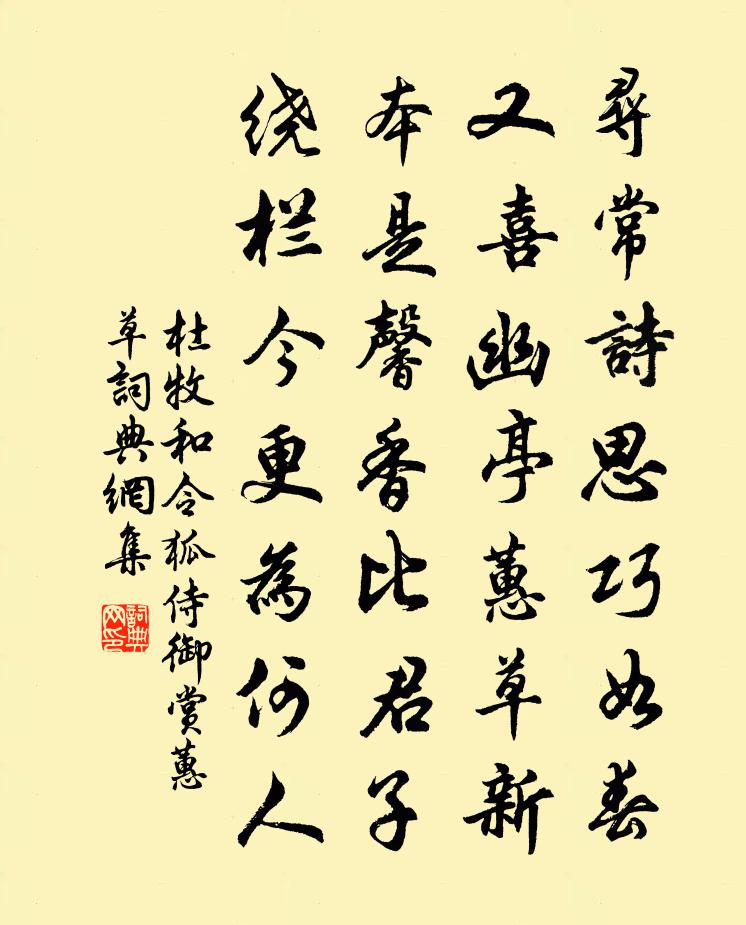 尋常詩思巧如春
又喜幽亭蕙草新
本是馨香比君子
绕栏今更為何人
杜牧和令狐侍御赏蕙
草詞典網集
詞典
网印